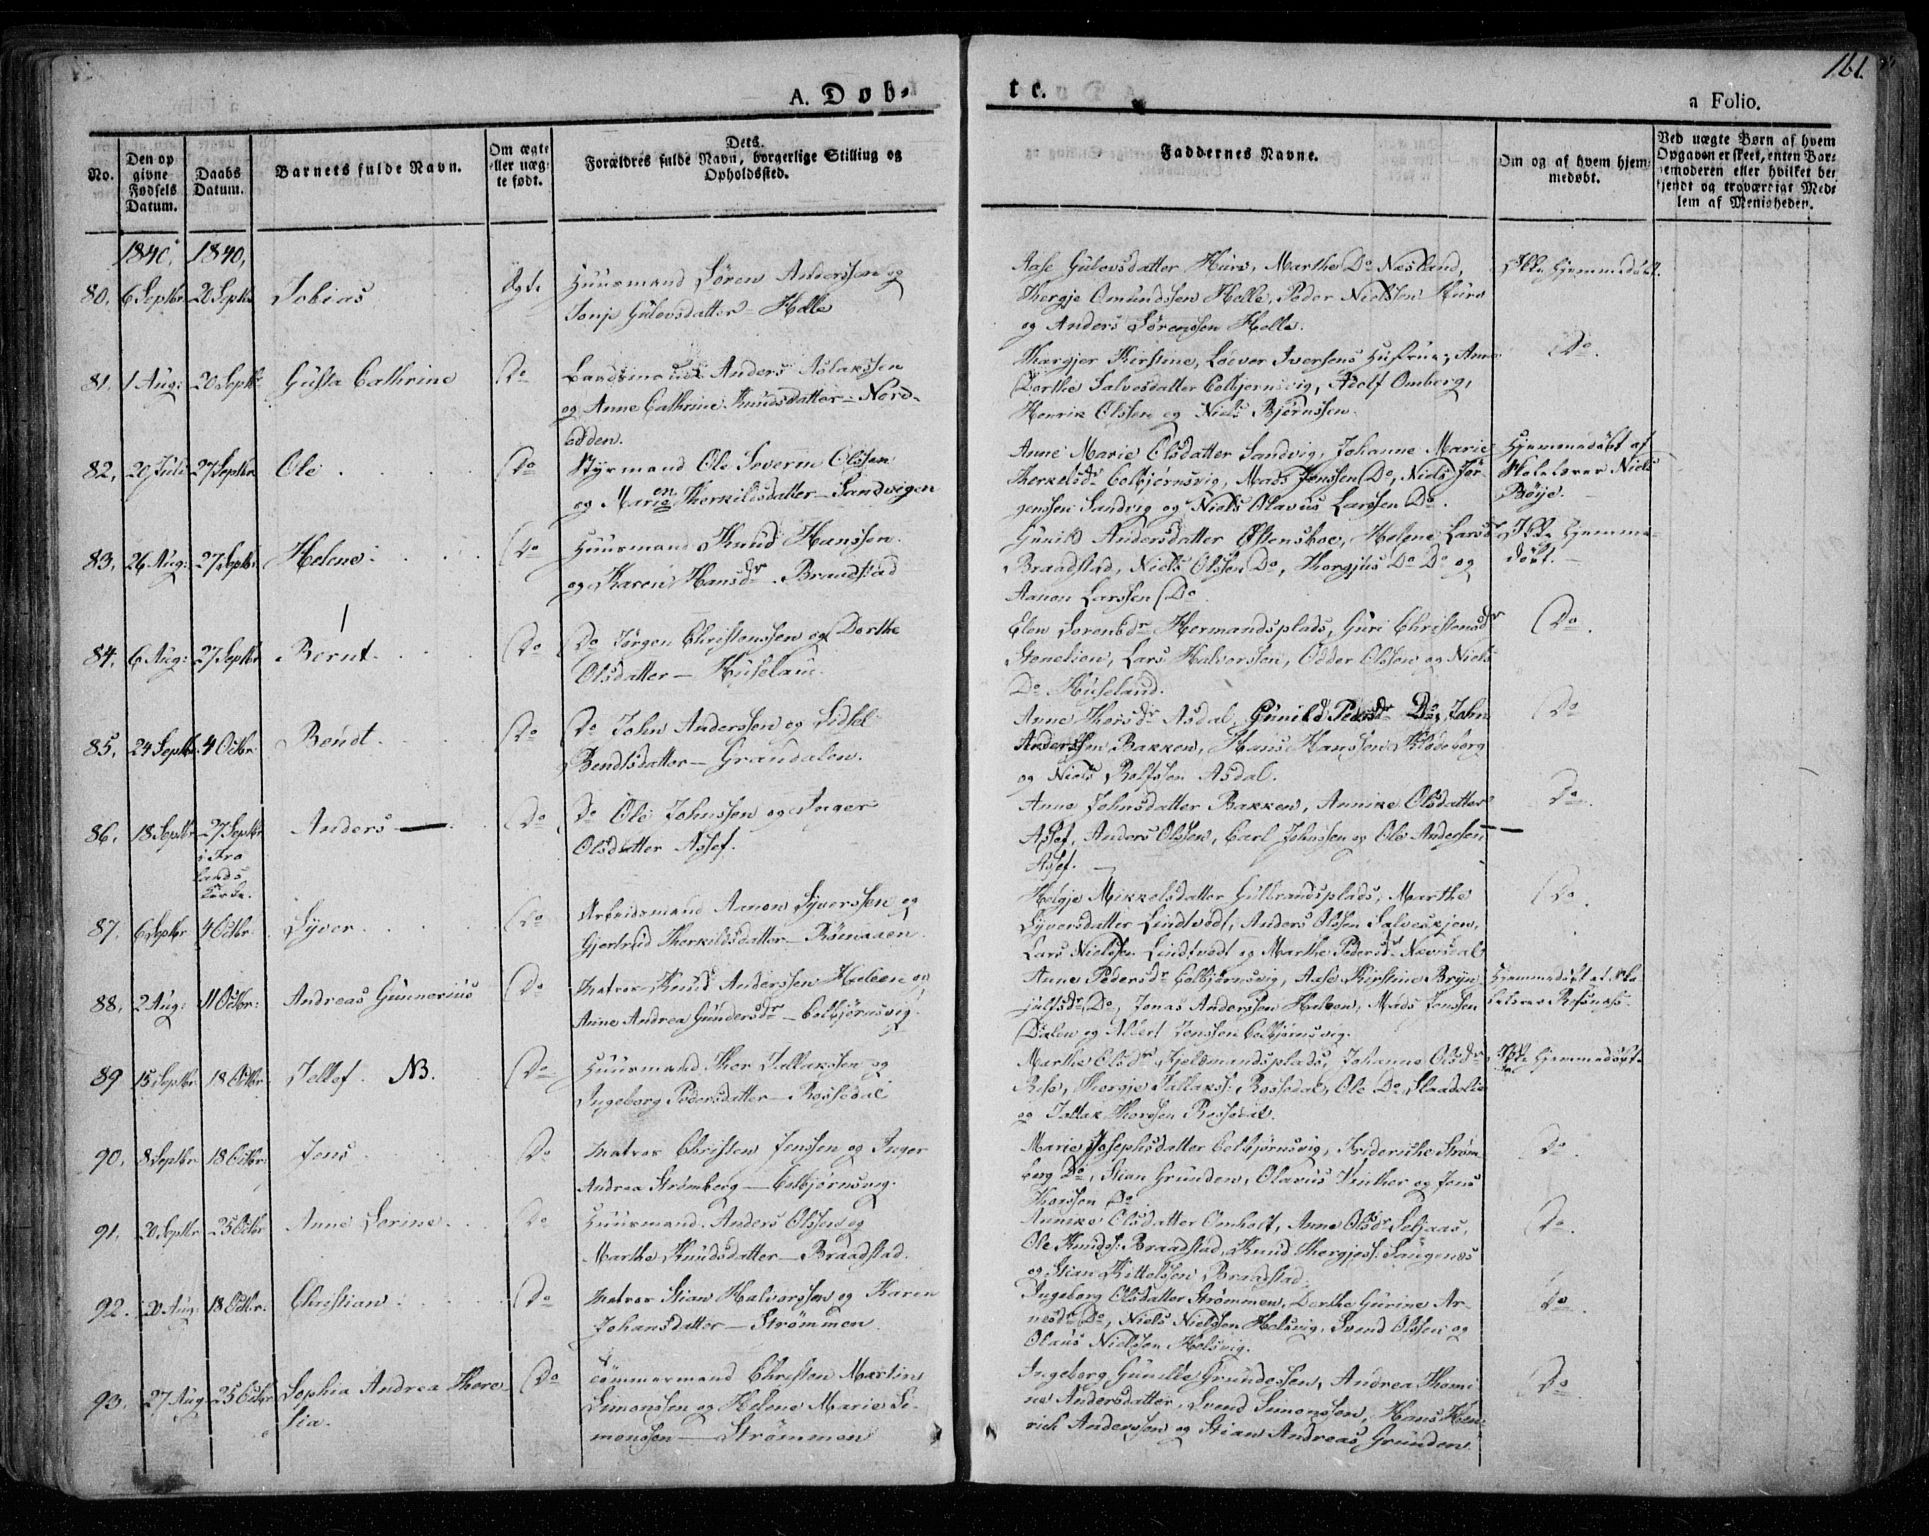 161.
A. Døb-
te.
a Folio.
No.
Den op
givne
Fødsels
Datum.
Daabs
Datum.
Barnets fulde Navn.
Om ægte
eller uæg-
te født.
Dets
Forældres fulde Navn, borgerlige Stilling og
Opholdssted.
Faddernes Navne.
Om og af hvem hjem-
medøbt.
Ved uægte Børn af hvem
Opgaven er skeet, enten Bar-
nemoderen eller hvilket be-
kjendt og troværdigt Med-
lem af Menigheden.
1840. 1840,
80. 6 Septbr 20 Septbr Tobias Ægte
Huusmand Søren Anderssen og
Tonje Gulovsdatter - Helle
Aase Gulovsdatter Huro, Marthe Do Næsland,
Thergje Omundssen Helle, Peder Nielssen Huro
og Anders Sørenssen Helle.
Ikke Hjemmedøbt.
81. 1 Aug: 20 Septbr Gusta Cathrine Do
Anders Aslakssen
og Anne Cathrine Knudsdatter - Nord-
odden.
Thargjer Kirstine, Loever Iversens Hustrue, Anne
Dorthe Salvesdatter Colbjørnsvig, Adolf Omberg,
Henrik Olssen og Niels Bjørnssen.
Do.
82. 20 Juli 27 Septbr Ole Do
Styrmand Ole Severin Olssen
og Maren Therkildsdatter - Sandvigen
Anne Marie Olsdatter Sandvig, Johanne Marie
Therkelsdr Colbjørnsvig, Mads Jenssen Do, Niels Jør-
genssen Sandvig og Niels Olavus Larssen Do.
Hjemmedøbt af
Skolelærer Niels
Bøije.
83. 26 Aug: 27 Septbr Helene Do
Huusmand Knud Hanssen
og Karen Hansdr - Braadstad
Gunild Andersdatter Østenskoe, Helene Larsdr
Braadstad, Niels Olssen Do, Thorgjus Do Do og
Aanon Larssen Do
Ikke Hjemme-
døbt.
84. 6 Aug: 27 Septbr Bernt Do
Do Jørgen Christenssen og Dorthe
Olsdatter - Huseland.
Elen Sorensdr Hermandsplads, Guri Christensdr
Stenelien, Lars Halvorssen, Odder Olssen og Niels
Do Huseland.
Do.
85. 24 Septbr. 4 Octbr Bendt Do
Do John Anderssen og Sidsel
Bendtsdatter - Grandalen.
Anne Thorsdr Asdal, Gunild Pedersdr Do, John
Anderssen Bakken, Hans Hanssen Klodeborg
og Niels Rolfssen Asdal.
Do
86. 18 Septbr 27 Septbr Anders Do
i Fro
lands
Kirke.
Do Ole Johnssen og Inger
Olsdatter Assef.
Anne Johnsdatter Bakken, Annike Olsdatter
Assef, Anders Olssen, Carl Johnssen og Ole Andersen
Assef.
Do.
87. 6 Septbr 4 Octbr. Syver Do
Arbeidsmand Aanon Syverssen og
Gjertrud Therkildsdatter - Rømaaen.
Helgje Mikkelsdatter Gulbrandsplads, Marthe
Syversdatter Lindtvedt, Anders Olssen Salveskjen,
Lars Nielssen Lindtvedt og Marthe Pedersdr Næversdal
Do.
88. 2 Aug: 11 Octbr: Andreas Gunnerius Do
Matros Knud Anderssen Holien og
Anne Andrea Gundersdr - Colbjørnsvig.
Anne Pedersdr Colbjørnsvig, Aase Kirstine Bryn-
julfsdr Do, Jonas Anderssen Holien, Mads Jenssen
Dalen og Albert Jenssen Colbjørnsvig.
Hjemmedøbt af Sko-
lelærer Refsnæss.
89 15 Septbr 18 Octbr Tellef. NB. Do
Huusmand Thor Tallakssen og
Ingeborg Pedersdatter - Rossedal
Marthe Olsdr Kjelsmandsplads, Johanne Olsdr
Rise, Thorgje Tallakss: Rossedal, Ole Do Slaadelie
og Tallak Thorssen Rossedal.
Ikke Hjemmedøbt.
90. 8 Septbr 18 Octbr Jens Do
Matros Christen Jenssen og Inger
Andrea Strømberg - Colbjørnsvig.
Marie Josephsdatter Colbjørnsvig, Frideriche Strøm-
berg Do, Stian Grunden, Olavus Vinther og Jens
Thorssen Do
Do
91. 20 Septbr 25 Octbr Anne Serine Do
Huusmand Anders Olssen og
Marthe Knudsdatter - Braadstad.
Annike Olsdatter Omholt, Anne Olsdr Solaas,
Ole Knuds: Braadstad, Knud Thorgjess: Saugenes
og Stian Kittelssen Braadstad.
Do.
92. 20 Aug: 18 Octbr. Christian Do
Matros Stian Halvorssen og Karen
Johansdatter - Strømmen.
Ingeborg Olsdatter Strømmen, Dorthe Gurine Ar-
nesdr Do, Niels Nielssen Helsvig, Svend Olssen og
Olaus Nielssen Helsvig.
Do.
93. 27 Aug 25 Octbr Sophia Andrea There-
sia. Do
Tømmermand Christen Martin
Simonssen og Helene Marie Si-
monssen - Strømmen
Ingeborg Gunilde Grundessen, Andrea Thomi-
ne Andersdatter, Svend Simonssen, Hans Hen-
rich Anderssen og Stian Andreas Grunden.
Do.